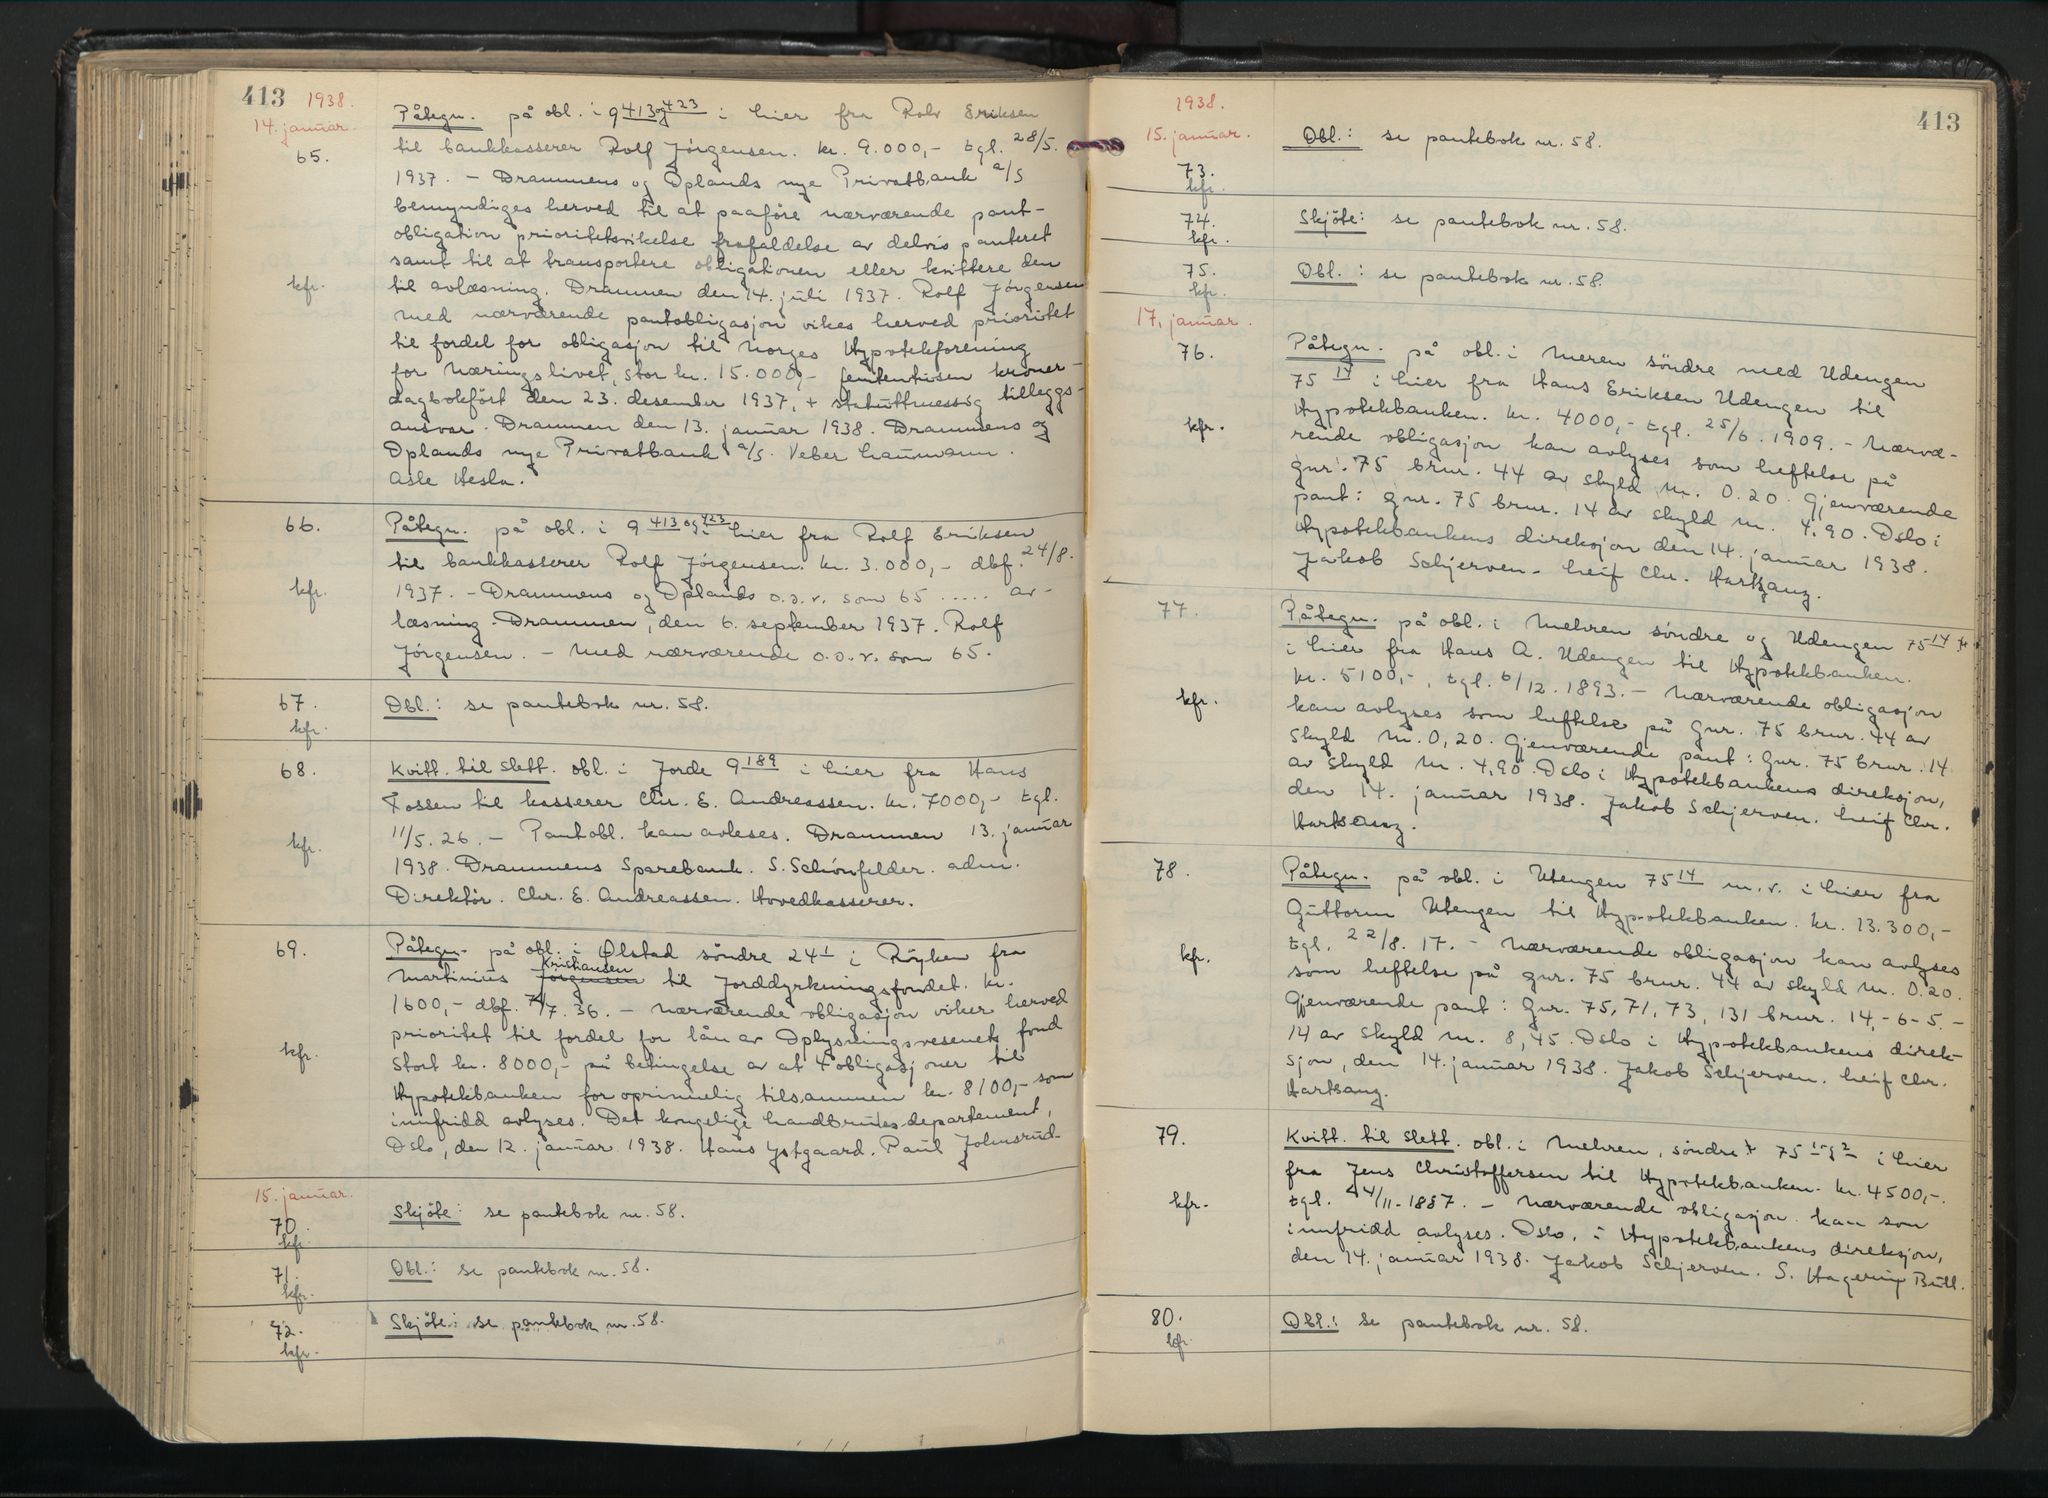 413 1938.
14. januar.
65.
Påtegn. på obl. i 9 413 og 423 i Lier fra Rolv Eriksen
til bankkasserer Rolf Jørgensen. kr. 9.000,- tgl. 28/5.
1937. – Drammens og Oplands nye Privatbank a/s
bemyndiges herved til at paaføre nærværende pant-
obligation prioritetsvikelse frafaldelse av delvis panteret
samt til at transportere obligationen eller kvittere den
kfr.
til avlæsning. Drammen den 14. juli 1937. Rolf Jørgensen
Med nærværende pantobligasjon vikes herved prioritet
til fordel for obligasjon til Norges Hypotekforening
for Næringslivet, stor kr. 15.000,- femtentusen kroner –
dagbokført den 23. desember 1937, + statuttmessig tilleggs-
ansvar. Drammen den 13. januar 1938. Drammens og
Oplands nye Privatbank a/s. Veber Laumann.
Asle Hesla.
66.
Påtegn. på obl. i 9 413 og 423 i Lier fra Rolf Eriksen
til bankkasserer Rolf Jørgensen. kr. 3.000,- dbf. 24/8.
kfr.
1937. – Drammens og Oplands o.s.v. som 65 ..... av-
læsning. Drammen, den 6. september 1937. Rolf
Jørgensen. – Med nærværende o.s.v. som 65.
67.
kfr.
Obl.: se pantebok nr. 58.
68.
Kvitt. til slett. obl. i Jorde 9 189 i Lier fra Hans
Fossen til kasserer Chr. E. Andreassen. kr. 7000,- tgl.
11/5. 26. – Pantobl. kan avleses. Drammen 13. januar
kfr.
1938. Drammens Sparebank. S. Schønfelder. adm.
Direktør. Chr. E. Andreassen. Hovedkasserer.
69.
Påtegn. på obl. i Ølstad søndre 24 1 i Røyken fra
Kristiansen
Martinius Jørgensen til Jorddyrkningsfondet. kr.
1600,- dbf. 7/7. 36. – Nærværende obligasjon viker herved
prioritet til fordel for lån av Oplysningsvesenets fond
kfr.
stort kr. 8000,- på betingelse av at 4 obligasjoner til
Hypotekbanken for oprinnelig tilsammen kr. 8100,- som
innfridd avlyses. Det kongelige Landbruksdepartement,
Oslo, den 12. januar 1938. Hans Ystgaard. Paul Johnsrud.
15. januar.
70.
kfr.
Skjøte: se pantebok nr. 58.
71.
kfr.
Obl.: se pantebok nr. 58.
72.
kfr.
Skjøte: se pantebok nr. 58.
1938. 413
15. januar.
73.
kfr.
Obl.: se pantebok nr. 58.
74.
kfr.
Skjøte: se pantebok nr. 58.
75.
kfr.
Obl.: se pantebok nr. 58.
17. januar.
76.
Påtegn. på obl. i Meren søndre med Udengen
75 14 i Lier fra Hans Eriksen Udengen til
kfr.
Hypotekbanken. kr. 4000,- tgl. 25/6. 1909. – Nærvæ-
rende obligasjon kan avlyses som heftelse på
gnr. 75 brnr. 44 av skyld m. 0.20. Gjenværende
pant: gnr. 75 brnr. 14 av skyld m. 4,90. Oslo i
Hypotekbankens direksjon den 14. januar 1938.
Jakob Schjerven. Leif Chr. Hartsang.
77.
Påtegn. på obl. i Mehren søndre og Udengen 75 14
i Lier fra Hans A. Udengen til Hypotekbanken.
kr. 5100,-, tgl. 6/12. 1893. – Nærværende obligasjon
kfr.
kan avlyses som heftelse på gnr. 75 brnr. 44 av
skyld m. 0,20. Gjenværende pant: gnr. 75 brnr. 14
av skyld m. 4,90. Oslo i Hypotekbankens direksjon,
den 14. januar 1938. Jakob Schjerven. Leif Chr.
Hartsang.
78.
Påtegn. på obl. i Utengen 75 14 m.v. i Lier fra
Guttorm Utengen til Hypotekbanken. kr. 13.300,-
kfr.
tgl. 22/8. 17. – Nærværende obligasjon kan avlyses
som heftelse på gnr. 75 brnr. 44 av skyld m. 0.20.
Gjenværende pant: Gnr. 75, 71, 73, 131 brnr. 14,-6-5.-
14 av skyld m. 8,45. Oslo i Hypotekbankens direk-
sjon, den 14. januar 1938. Jakob Schjerven. Leif Chr.
Hartsang.
79.
Kvitt. til slett. obl. i Mehren, søndre 75 1 og 2 i Lier
fra Jens Christoffersen til Hypotekbanken. kr. 4500,-.
kfr.
tgl. 4/11. 1887. – Nærværende obligasjon kan som
innfridd avlyses. Oslo, i Hypotekbankens direksjon,
den 14. januar 1938. Jakob Schjerven. S. Hagerup Bull.
80.
kfr.
Obl.: se pantebok nr. 58.